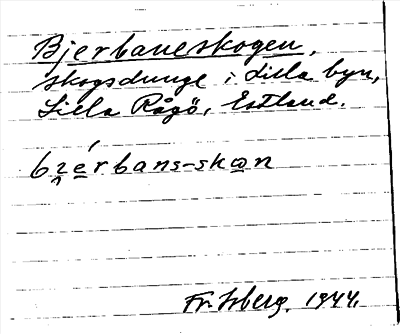 Bjerbaneskogen,
skogsdunge i Lilla byn,
Lilla Rågö, Estland.
bɪ̯érbans-skαn
1944.